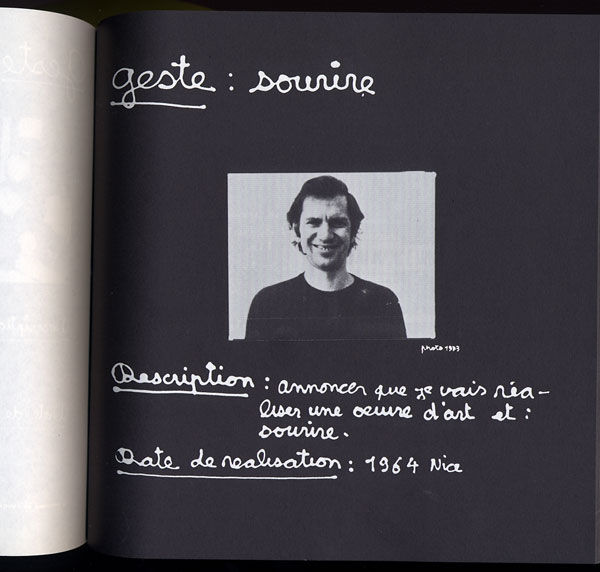 geste : sourire
photo 1973
Description : annoncer que je vais réa-
liser une oeuvre d'art et :
sourire.
Date de realisation : 1964 Nice